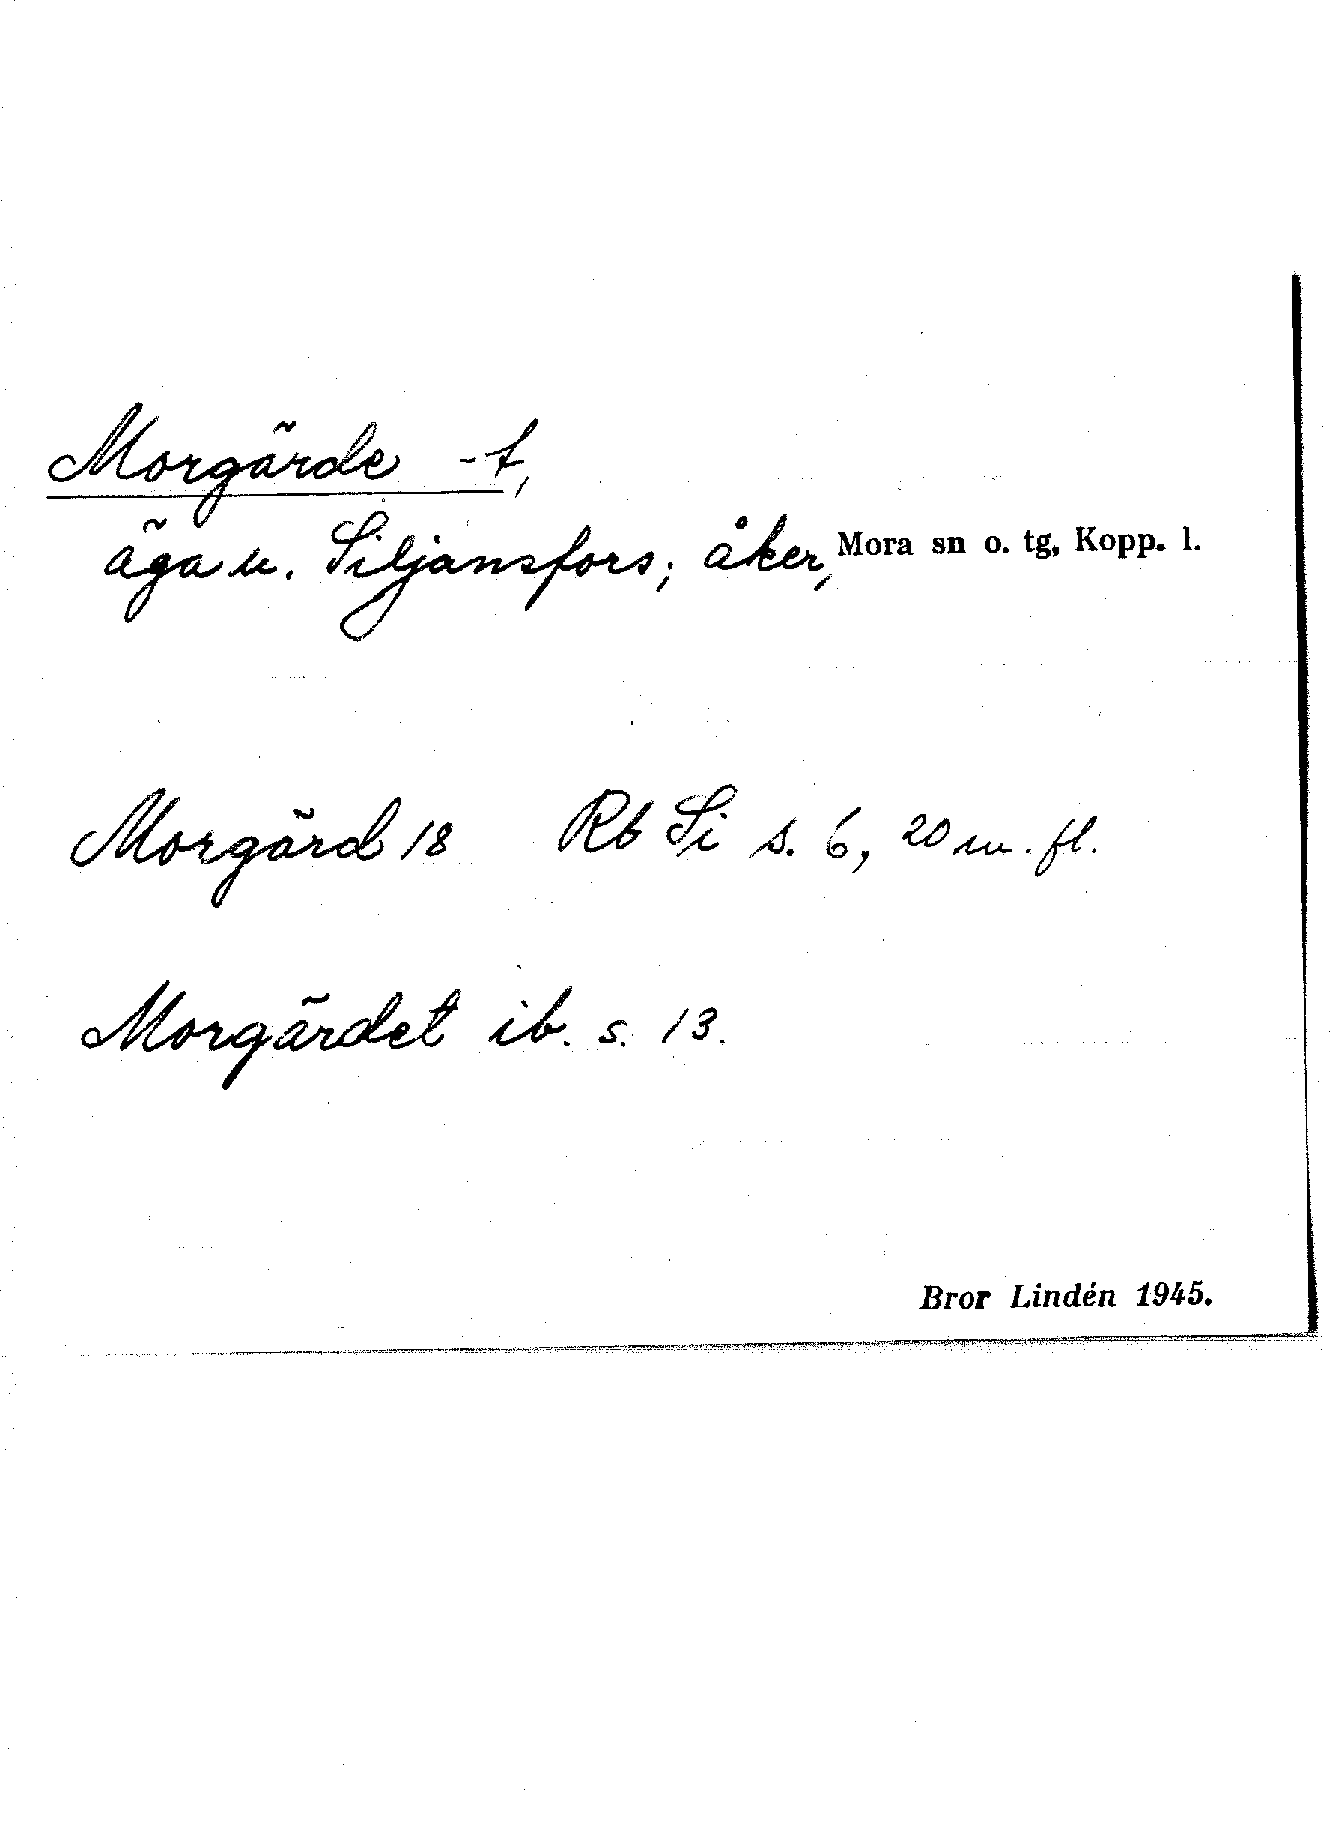 Morgärde -t,
äga u. Siljansfors; åker, Mora sn o. tg, Kopp. l.
Morgärd 18 Rb Si s. 6, 20 m. fl.
Morgärdet ib. s. 13.
Bror Lindén 1945.